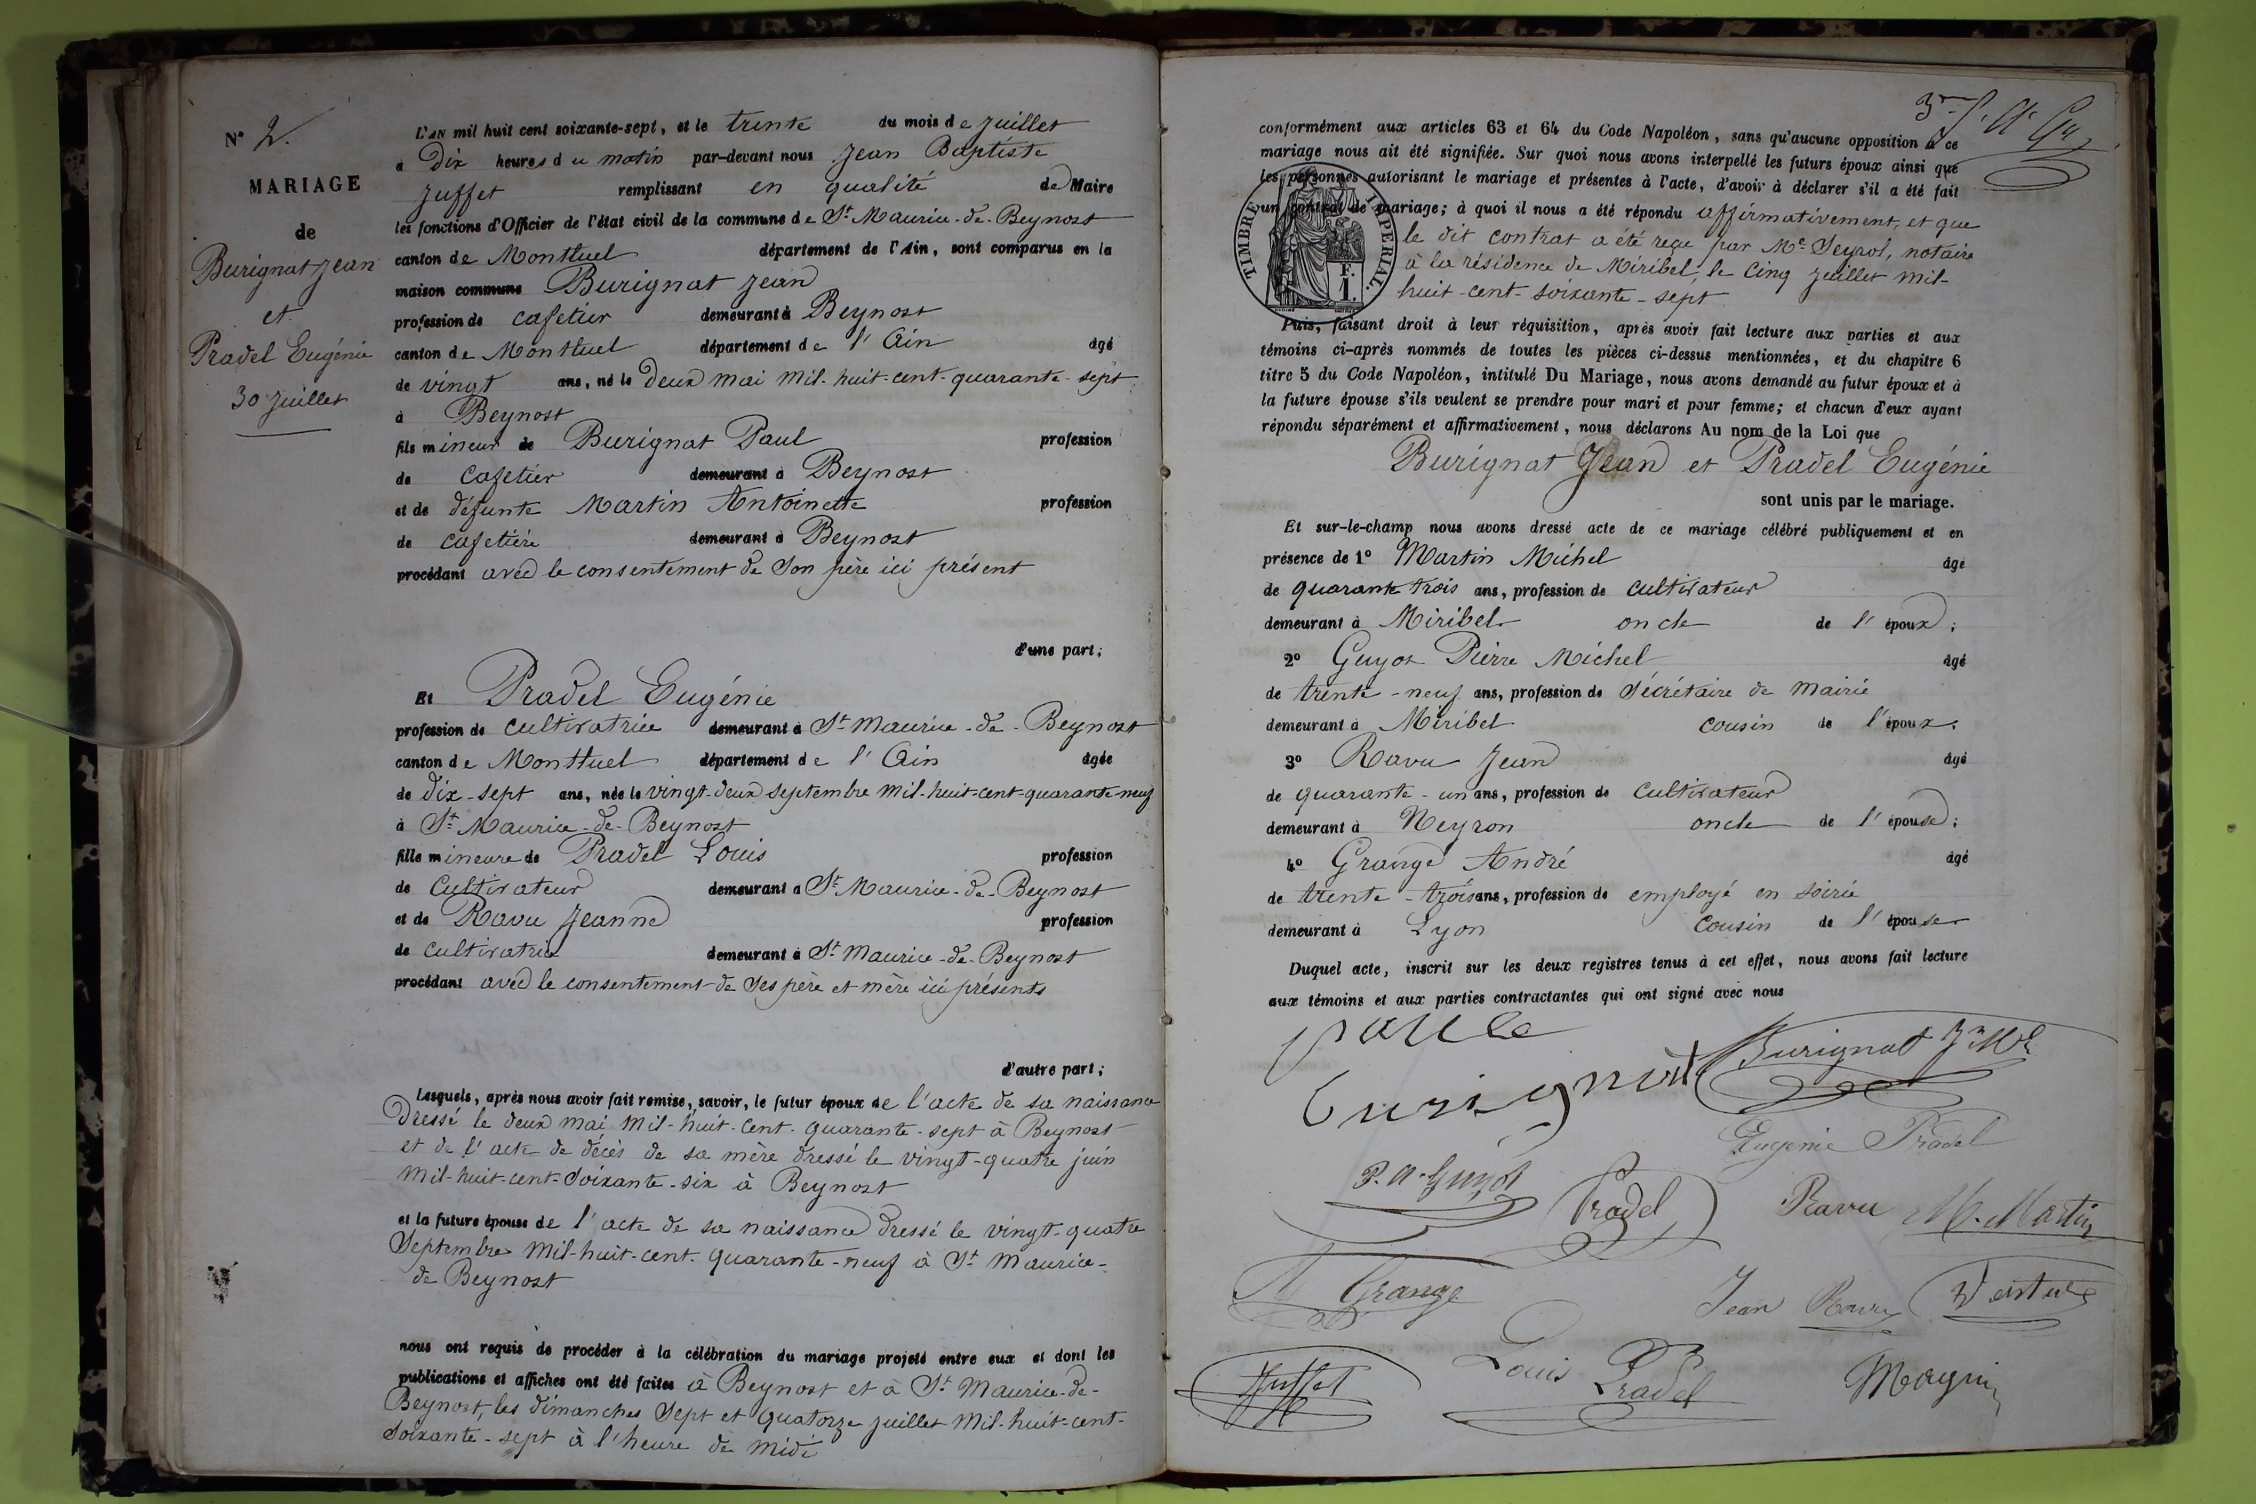 N° 2.
MARIAGE
de
Burignat Jean
et
Pradel Eugénie
30 juillet
L'AN mil huit cent soixante-sept, et le trente du mois de juillet
à dix heures du matin par-devant nous Jean Baptiste
Juffet remplissant en qualité de Maire
les fonctions d'Officier de l'état civil de la commune de St Maurice-de-Beynost
canton de Montluel département de l'Ain, sont comparus en la
maison commune Burignat Jean
profession de cafetier demeurant à Beynost
canton de Montluel département de l'Ain âgé
de vingt ans, né le deux mai mil-huit-cent-quarante-sept
à Beynost
fils mineur de Burignat Paul profession
de cafetier demeurant à Beynost
et de défunte Martin Antoinette profession
de cafetière demeurant à Beynost
procédant avec le consentement de son père ici présent
d'une part;
Et Pradel Eugénie
profession de cultivatrice demeurant à St Maurice-de-Beynost
canton de Montluel département de l'Ain âgée
de dix-sept ans, née le vingt-deux septembre mil-huit-cent-quarante-neuf
à St Maurice-de-Beynost
fille mineure de Pradel Louis profession
de cultivateur demeurant à St Maurice-de-Beynost
et de Ravu Jeanne profession
de cultivatrice demeurant à St Maurice-de-Beynost
procédant avec le consentement de ses père et mère ici présents
d'autre part;
Lesquels, après nous avoir fait remise, savoir, le futur époux de l'acte de sa naissance
dressé le deux mai mil-huit-cent-quarante-sept à Beynost
et de l'acte de décès de sa mère dressé le vingt-quatre juin
mil-huit-cent-soixante-six à Beynost
et la future épouse de l'acte de sa naissance dressé le vingt-quatre
septembre mil-huit-cent-quarante-neuf à St Maurice-
de Beynost
nous ont requis de procéder à la célébration du mariage projeté entre eux et dont les
publications et affiches ont été faites à Beynost et à St Maurice-de-
Beynost, les dimanches sept et quatorze juillet mil-huit-cent-
soixante-sept à l'heure de midi
conformément aux articles 63 et 64 du Code Napoléon, sans qu'aucune opposition à ce
mariage nous ait été signifiée. Sur quoi nous avons interpellé les futurs époux ainsi que
les personnes autorisant le mariage et présentes à l'acte, d'avoir à déclarer s'il a été fait
un contrat de mariage; à quoi il nous a été répondu affirmativement, et que
le dit contrat a été reçu par Me Seyrol, notaire
à la résidence de Miribel, le cinq juillet mil-
huit-cent-soixante-sept
TIMBRE IMPERIAL.
F.
1.
Puis, faisant droit à leur réquisition, après avoir fait lecture aux parties et aux
témoins ci-après nommés de toutes les pièces ci-dessus mentionnées, et du chapitre 6
titre 5 du Code Napoléon, intitulé Du Mariage, nous avons demandé au futur époux et à
la future épouse s'ils veulent se prendre pour mari et pour femme; et chacun d'eux ayant
répondu séparément et affirmativement, nous déclarons Au nom de la Loi que
Burignat Jean et Pradel Eugénie
sont unis par le mariage.
Et sur-le-champ nous avons dressé acte de ce mariage célébré publiquement et en
présence de 1° Martin Michel âgé
de quarante trois ans, profession de cultivateur
demeurant à Miribel oncle de l'époux;
2° Guyot Pierre Michel âgé
de trente-neuf ans, profession de sécrétaire de mairie
demeurant à Miribel cousin de l'époux.
3° Ravu Jean âgé
de quarante-un ans, profession de cultivateur
demeurant à Neyron oncle de l'épouse;
4° Grange André âgé
de trente-trois ans, profession de employé en soirie
demeurant à Lyon cousin de l'épouse
Duquel acte, inscrit sur les deux registres tenus à cet effet, nous avons fait lecture
aux témoins et aux parties contractantes qui ont signé avec nous
Burignat
Eugenie Pradel
P. A. Guyot Pradel Ravu M. Martin
Grange Jean Ravu
Juffet Louis Pradel Magnin